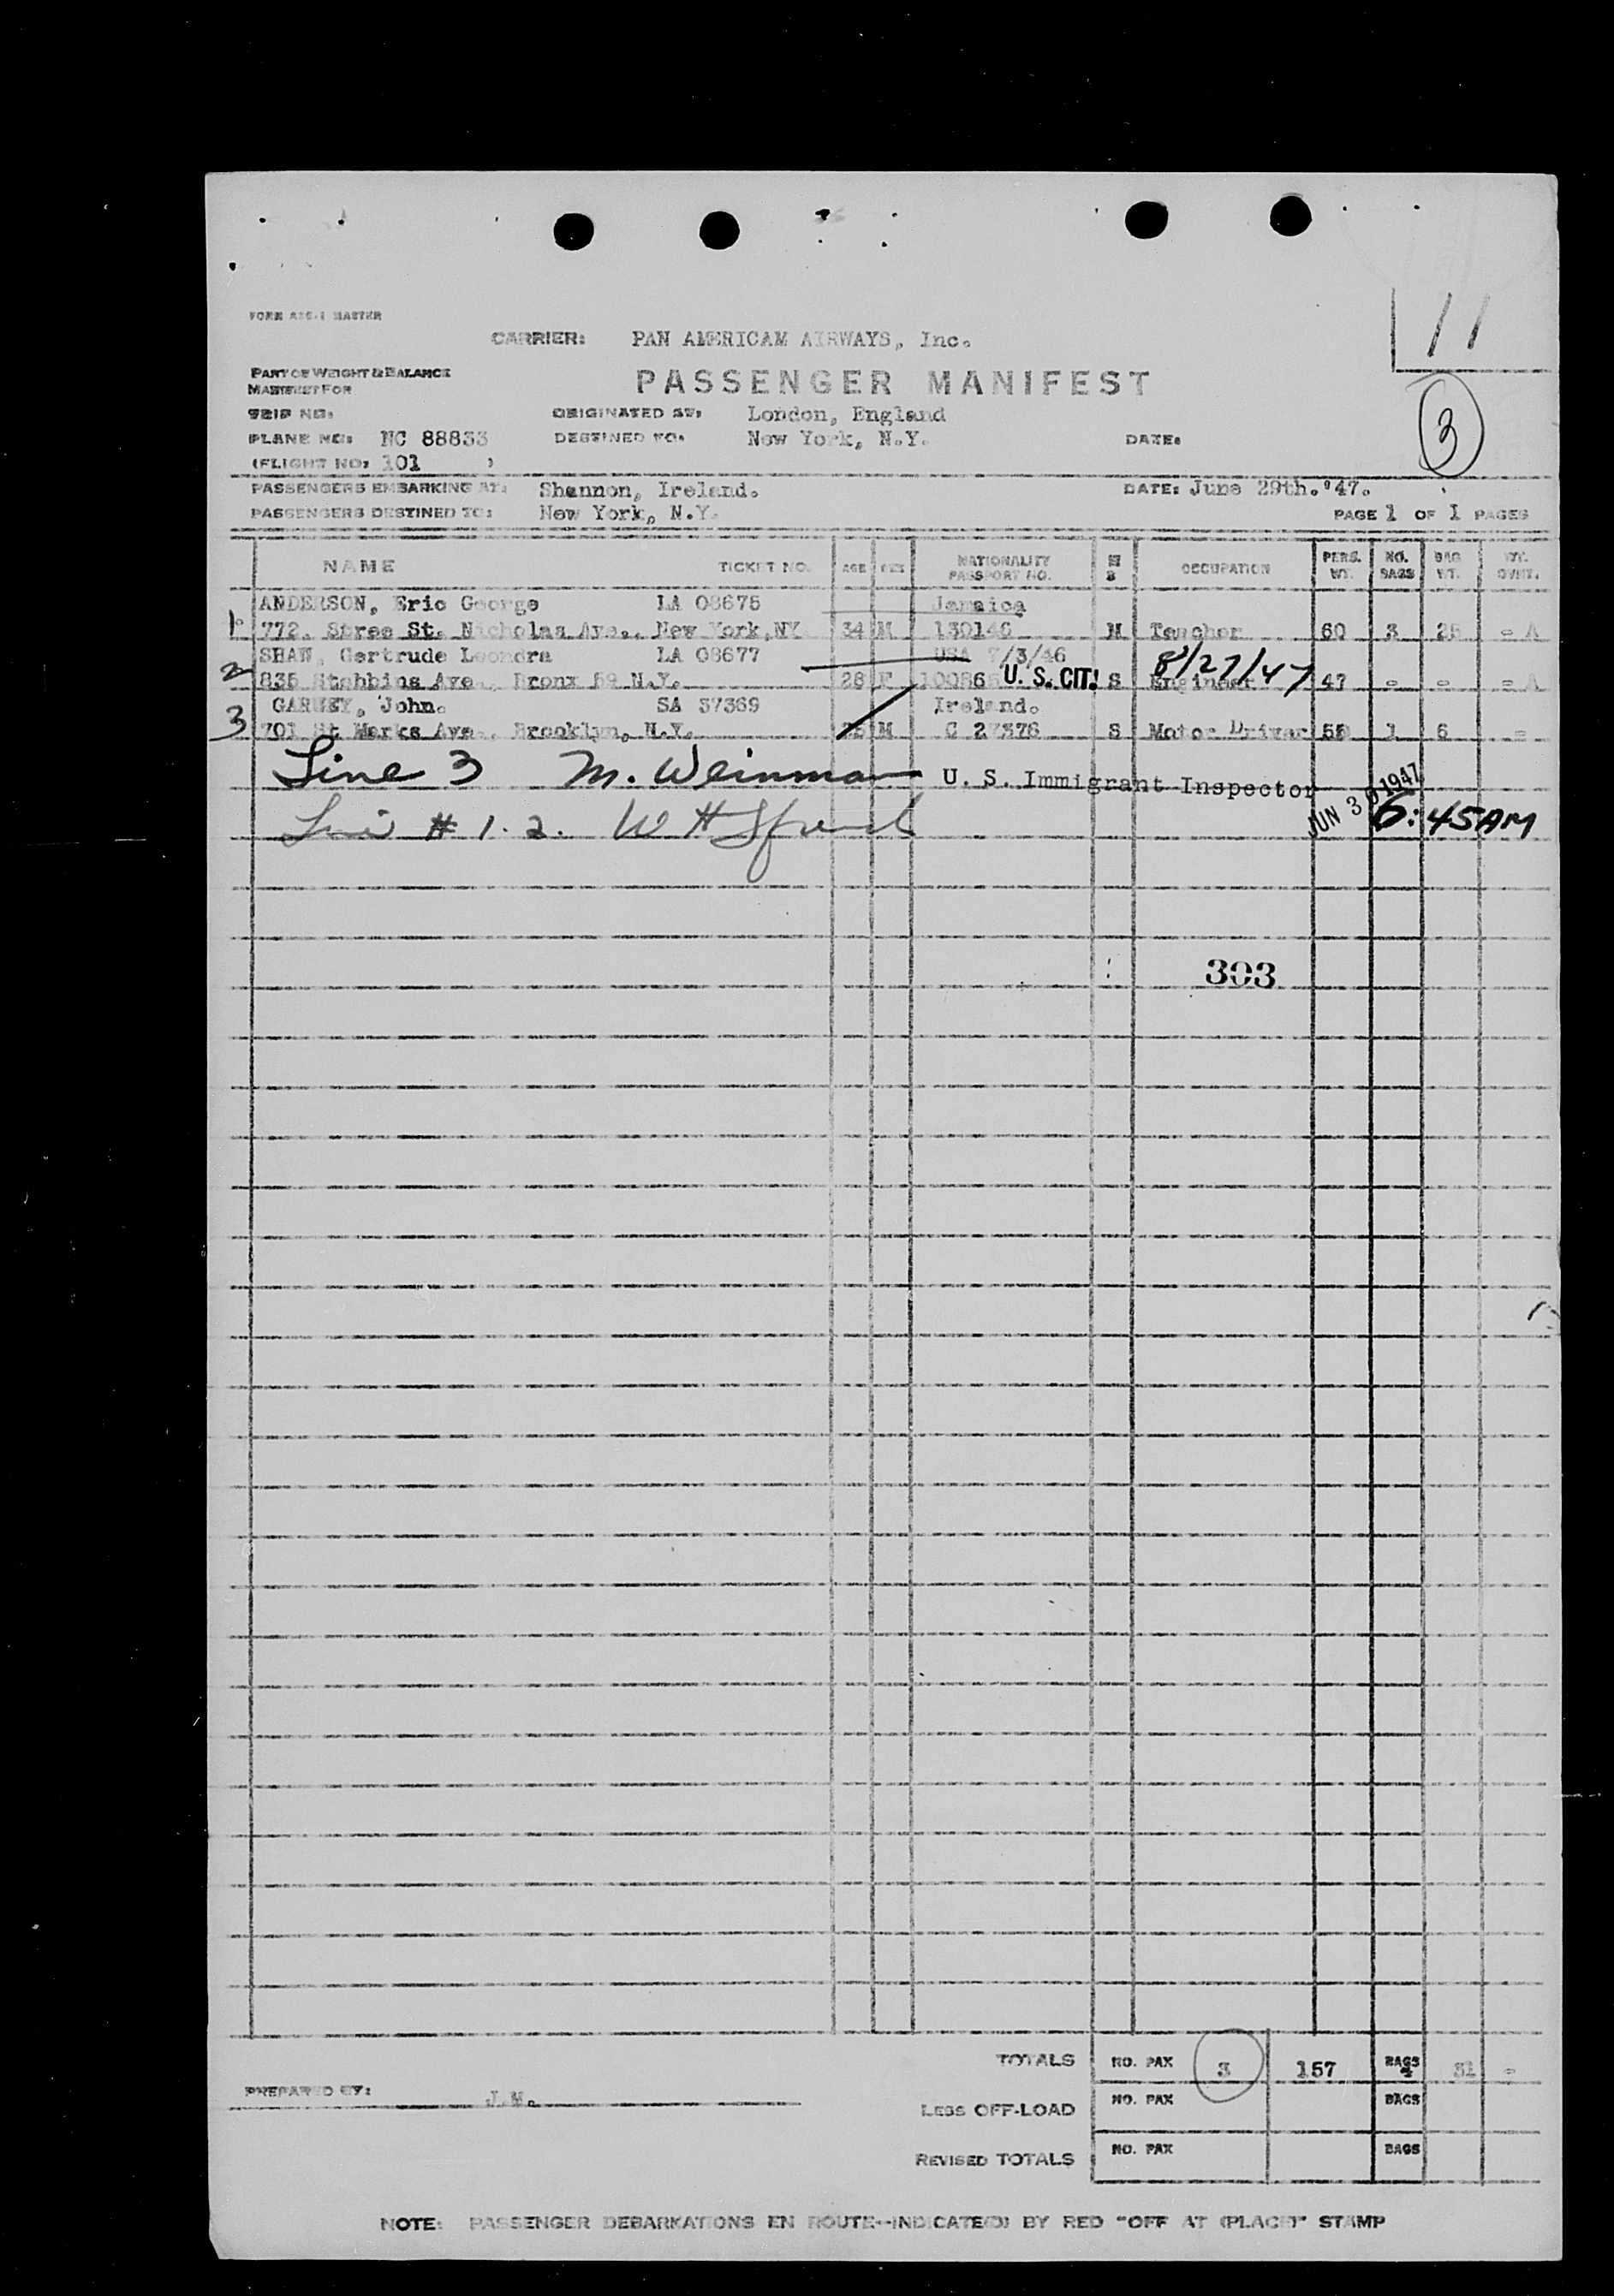 FORM ATC-1 MASTER
11
CARRIER: PAN AMERICAM AIRWAYS, Inc.
PART OF WEIGHT & BALANCE
MANIFEST FOR
PASSENGER MANIFEST
TRIP NO:
ORIGINATED AT: London, England
3
PLANE NO: NC 88833
DESTINED TO: New York, N.Y.
DATE:
(FLIGHT NO: 101 )
PASSENGERS EMBARKING AT: Shannon, Ireland.
DATE: June 29th. '47.
PASSENGERS DESTINED TO: New York, N.Y.
PAGE 1 OF 1 PAGES
NAME TICKET NO. AGE SEX NATIONALITY PASSPORT NO. OCCUPATION PERS. WT. NO. BAGS BAG WT.
ANDERSON, Eric George LA 08675 Jamaica
1 772. St. Nicholas Ave., New York, NY 34 M 130146 M Teacher 60 3 25 - A
SHAW, Gertrude Leondra LA 08677 USA 7/3/46 8/27/47
2 835 Stebbins Ave., Bronx 59 N.Y. 28 F U. S. CIT. S Engineer 47 - - - A
GARVEY, John. SA 37369 Ireland.
3 701 St Marks Ave., Brooklyn, N.Y. M C 27376 S Motor Driver 1 6 -
Line 3 M. Weinman U. S. Immigrant Inspector
JUN 30 1947
# 1. 2. W H 6:45 AM
303
TOTALS NO. PAX 3 157 BAGS 4 31 -
PREPARED BY:
LESS OFF-LOAD NO. PAX BAGS
REVISED TOTALS NO. PAX BAGS
NOTE: PASSENGER DEBARKATIONS EN ROUTE--INDICATE(D) BY RED "OFF AT (PLACE)" STAMP